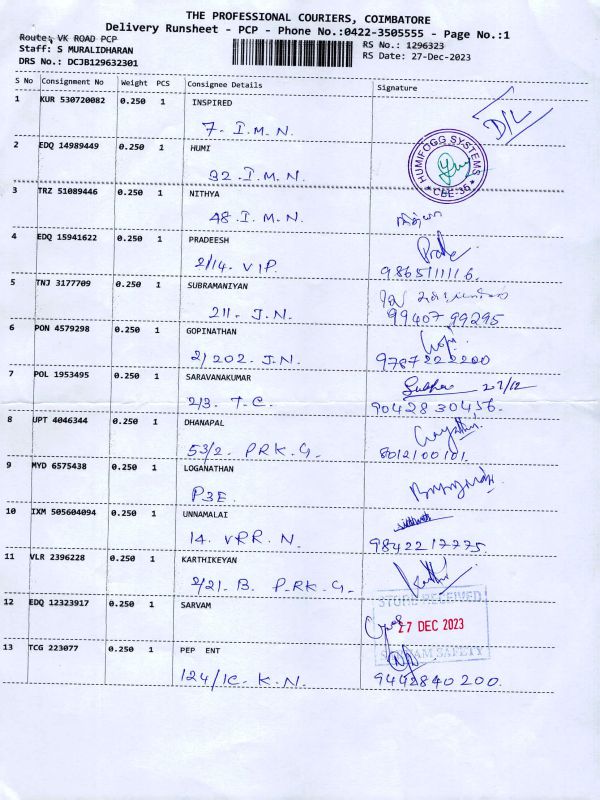 THE PROFESSIONAL COURIERS, COIMBATORE
Delivery Runsheet - PCP - Phone No.:0422-3505555 - Page No.:1
Route: VK ROAD PCP
Staff: S MURALIDHARAN
DRS No.: DCJB129632301
RS No.: 1296323
RS Date: 27-Dec-2023
S No Consignment No Weight PCS Consignee Details Signature
1 KUR 530720082 0.250 1 INSPIRED
7. I.M.N. D/L
2 EDQ 14989449 0.250 1 HUMI
92. I.M.N. HUMIFOGG SYSTEMS * CBE-36 *
3 TRZ 51089446 0.250 1 NITHYA
48. I.M.N.
4 EDQ 15941622 0.250 1 PRADEESH
2/14. VIP. 9865111116.
5 TNJ 3177709 0.250 1 SUBRAMANIYAN
211. J.N. 99407 99295
6 PON 4579298 0.250 1 GOPINATHAN
2/202. J.N. 9787222200
7 POL 1953495 0.250 1 SARAVANAKUMAR 27/12
2/3. T.C. 90428 30456.
8 UPT 4046344 0.250 1 DHANAPAL
53/2. P.R.K.G. 8012100101.
9 MYD 6575438 0.250 1 LOGANATHAN
P3E.
10 IXM 505604094 0.250 1 UNNAMALAI
14. VRR.N. 9842217775.
11 VLR 2396228 0.250 1 KARTHIKEYAN
2/21. B. P.RK.G.
STORE RECEIVED
12 EDQ 12323917 0.250 1 SARVAM
27 DEC 2023
SAFETY
13 TCG 223077 0.250 1 PEP ENT
124/1C. K.N. 9442840200.